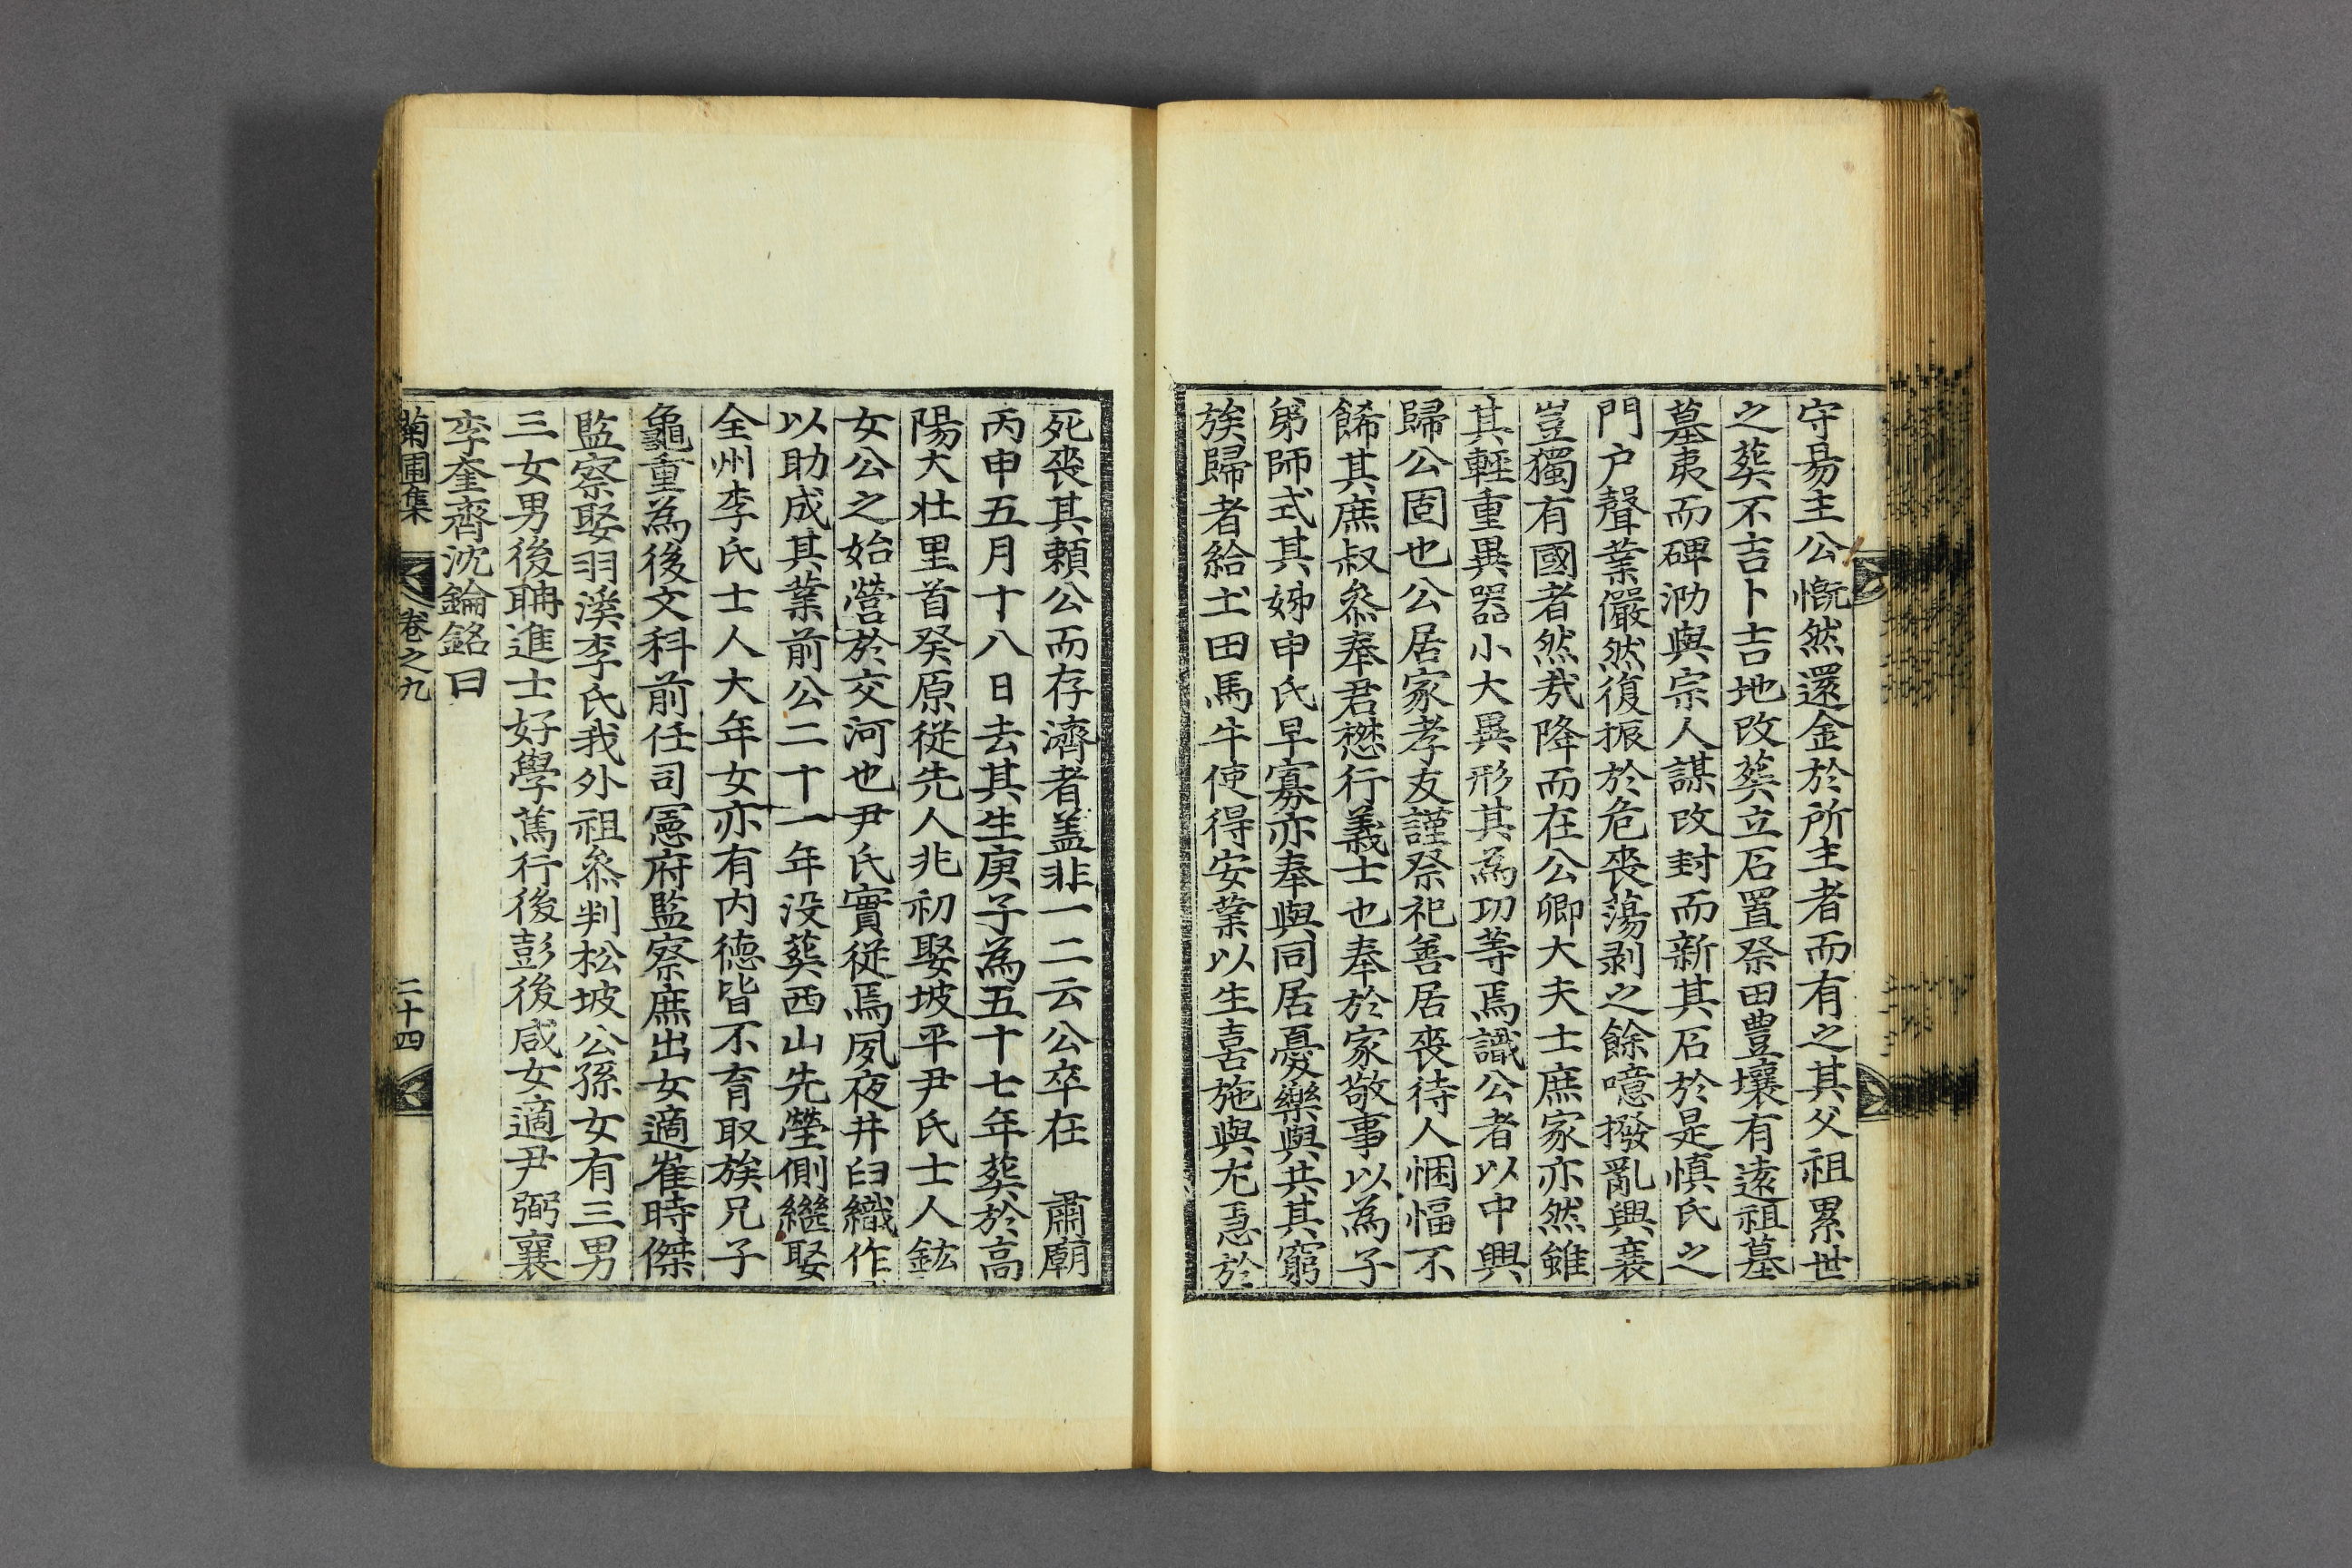 守易主公慨然還金於所主者而有之其父祖累世
之葬不吉卜吉地改葬立石置祭田豊壤有遠祖墓
墓夷而碑泐與宗人謀改封而新其石於是愼氏之
門户聲業儼然復振於危喪蕩剥之餘噫撥亂興衰
豈獨有國者然㢤降而在公卿大夫士庶家亦然雖
其輕重異器小大異形其為功等焉識公者以中興
歸公固也公居家孝友謹祭祀善居喪待人悃愊不
餙其庶叔叅奉君懋行義士也奉於家敬事以為子
弟師式其姊申氏早寡亦奉與同居憂樂與共其窮
族歸者給土田馬牛使得安業以生喜施與尤急於
死喪其頼公而存濟者盖非一二云公卒在　肅廟
丙申五月十八日去其生庚子為五十七年葬於高
陽大壯里首癸原從先人兆初娶坡平尹氏士人鉉
女公之始營於交河也尹氏實從焉夙夜井臼織作
以助成其業前公二十一年没葬西山先塋側繼娶
全州李氏士人大年女亦有内德皆不育取族兄子
龜重為後文科前任司憲府監察庶出女適崔時傑
監察娶羽溪李氏我外祖叅判松坡公孫女有三男
三女男後聃進士好學篤行後彭後咸女適尹弼襄
李奎齊沈鑰銘曰
菊圃集　卷之九　二十四